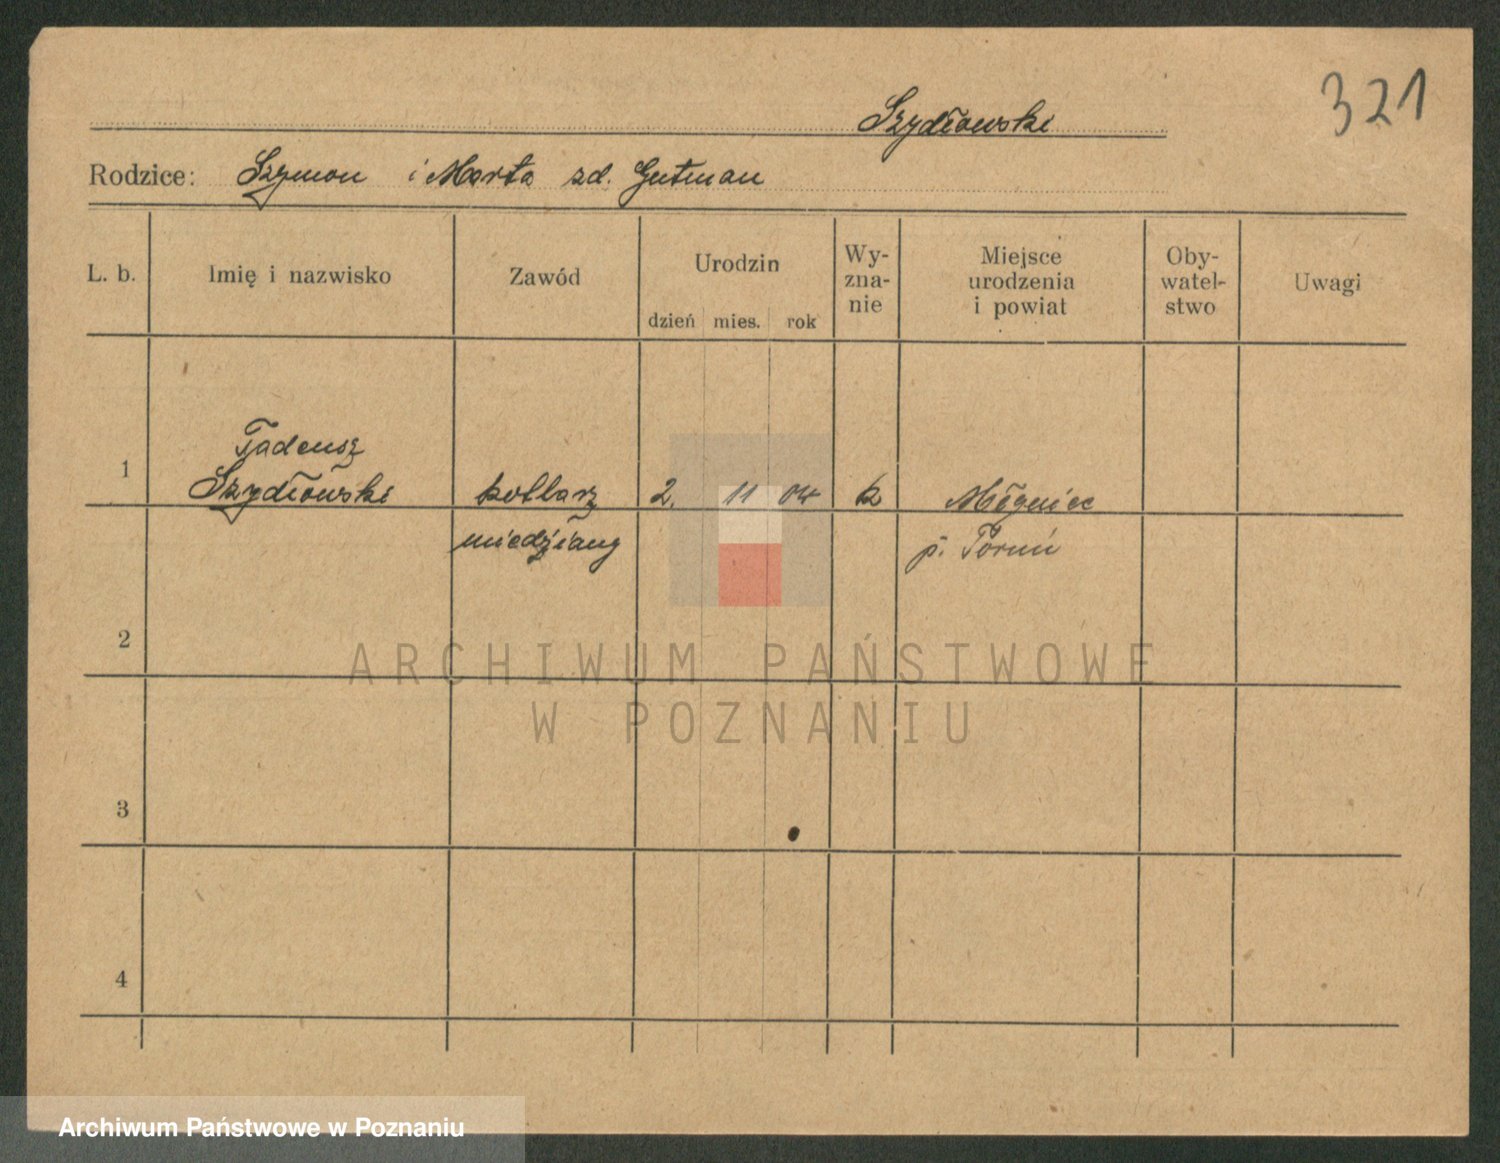 321
Szydłowski
Rodzice: Szymon i Marta zd. Gutman
L. b.
Imię i nazwisko
Zawód
Urodzin
dzień
mies.
rok
Wy-
zna-
nie
Miejsce
urodzenia
i powiat
Oby-
watel-
stwo
Uwagi
1
Tadeusz
Szydłowski
kotlarz
miedziany
2.
11
04
k
Młyniec
p. Toruń
2
3
4
ARCHIWUM PAŃSTWOWE
W POZNANIU
Archiwum Państwowe w Poznaniu